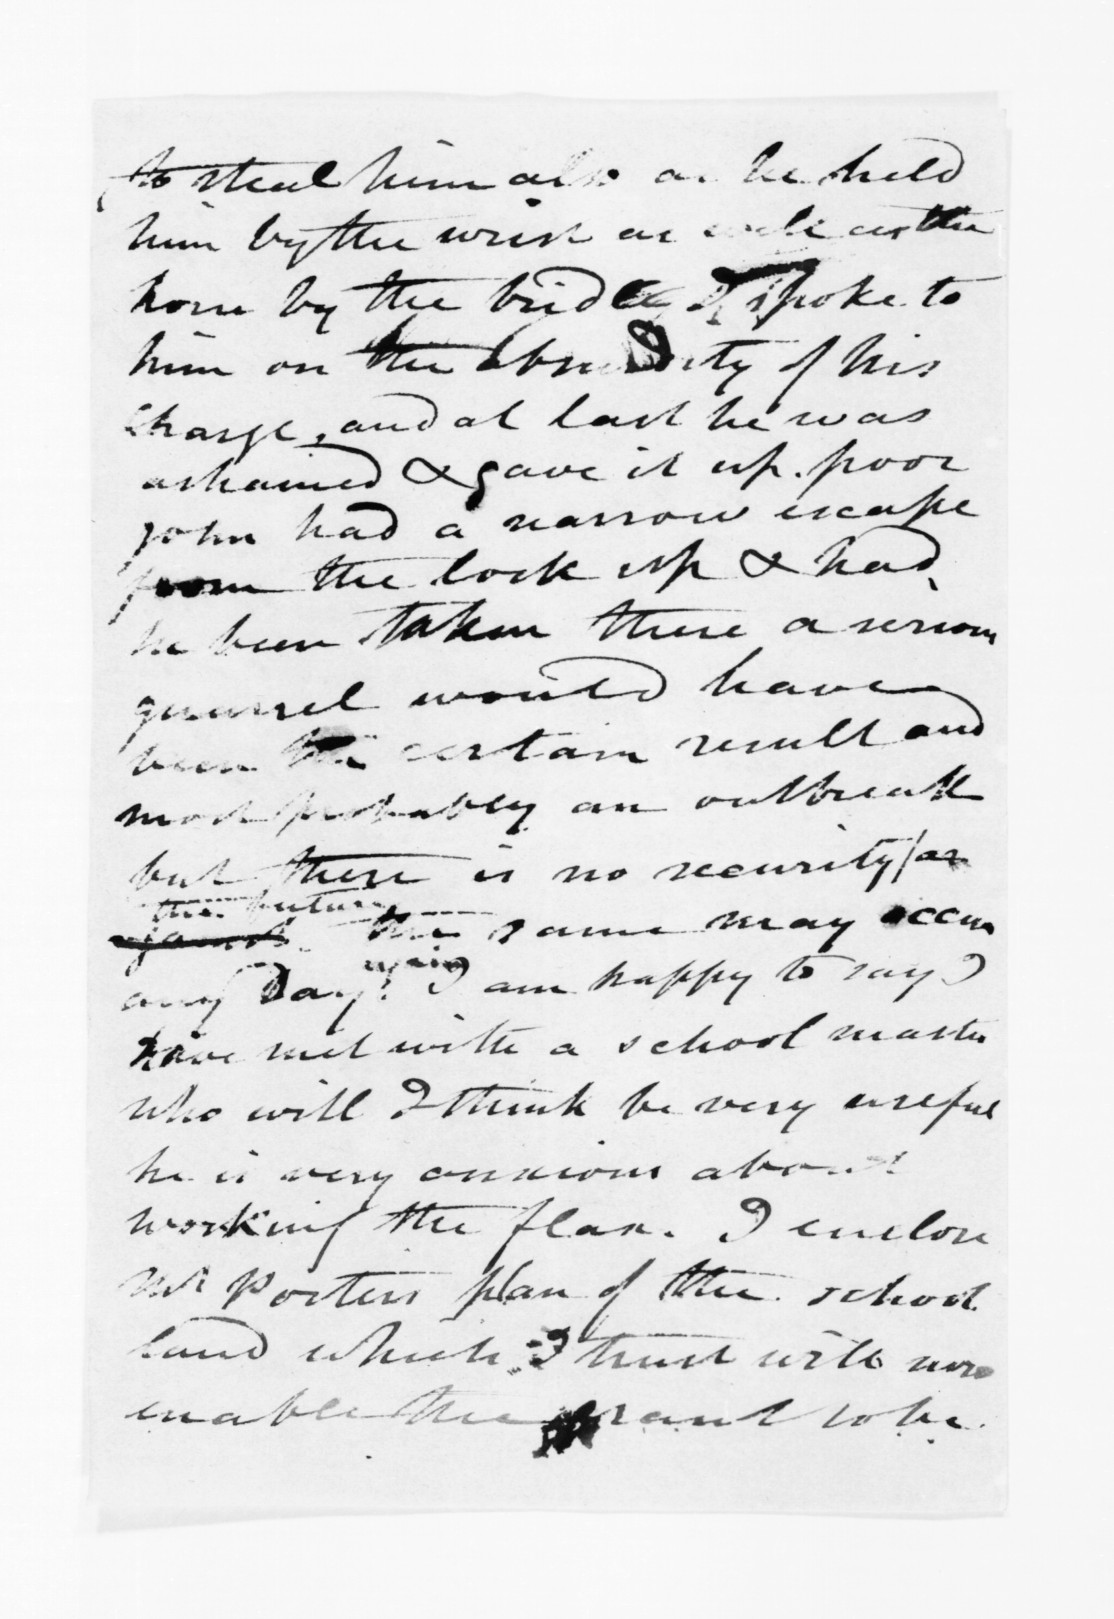 to steal him also as he held
him by the wrist as well as the
horse by the bridle, I spoke to
him on the absurdity of his
charge, and at last he was
ashamed & gave it up. poor
John had a narrow escape
from the lock up & had
he been taken there a serious
quarrel would have
been the certain result and
most probably an outbreak
but there is no security for
the future
against. the same may occur
again
any Day. I am happy to say I
have met with a school master
who will I think be very useful
he is very anxious about
working the flax. I enclose
Mr Porters plan of the school
land which I trust will now
enable the grant to be